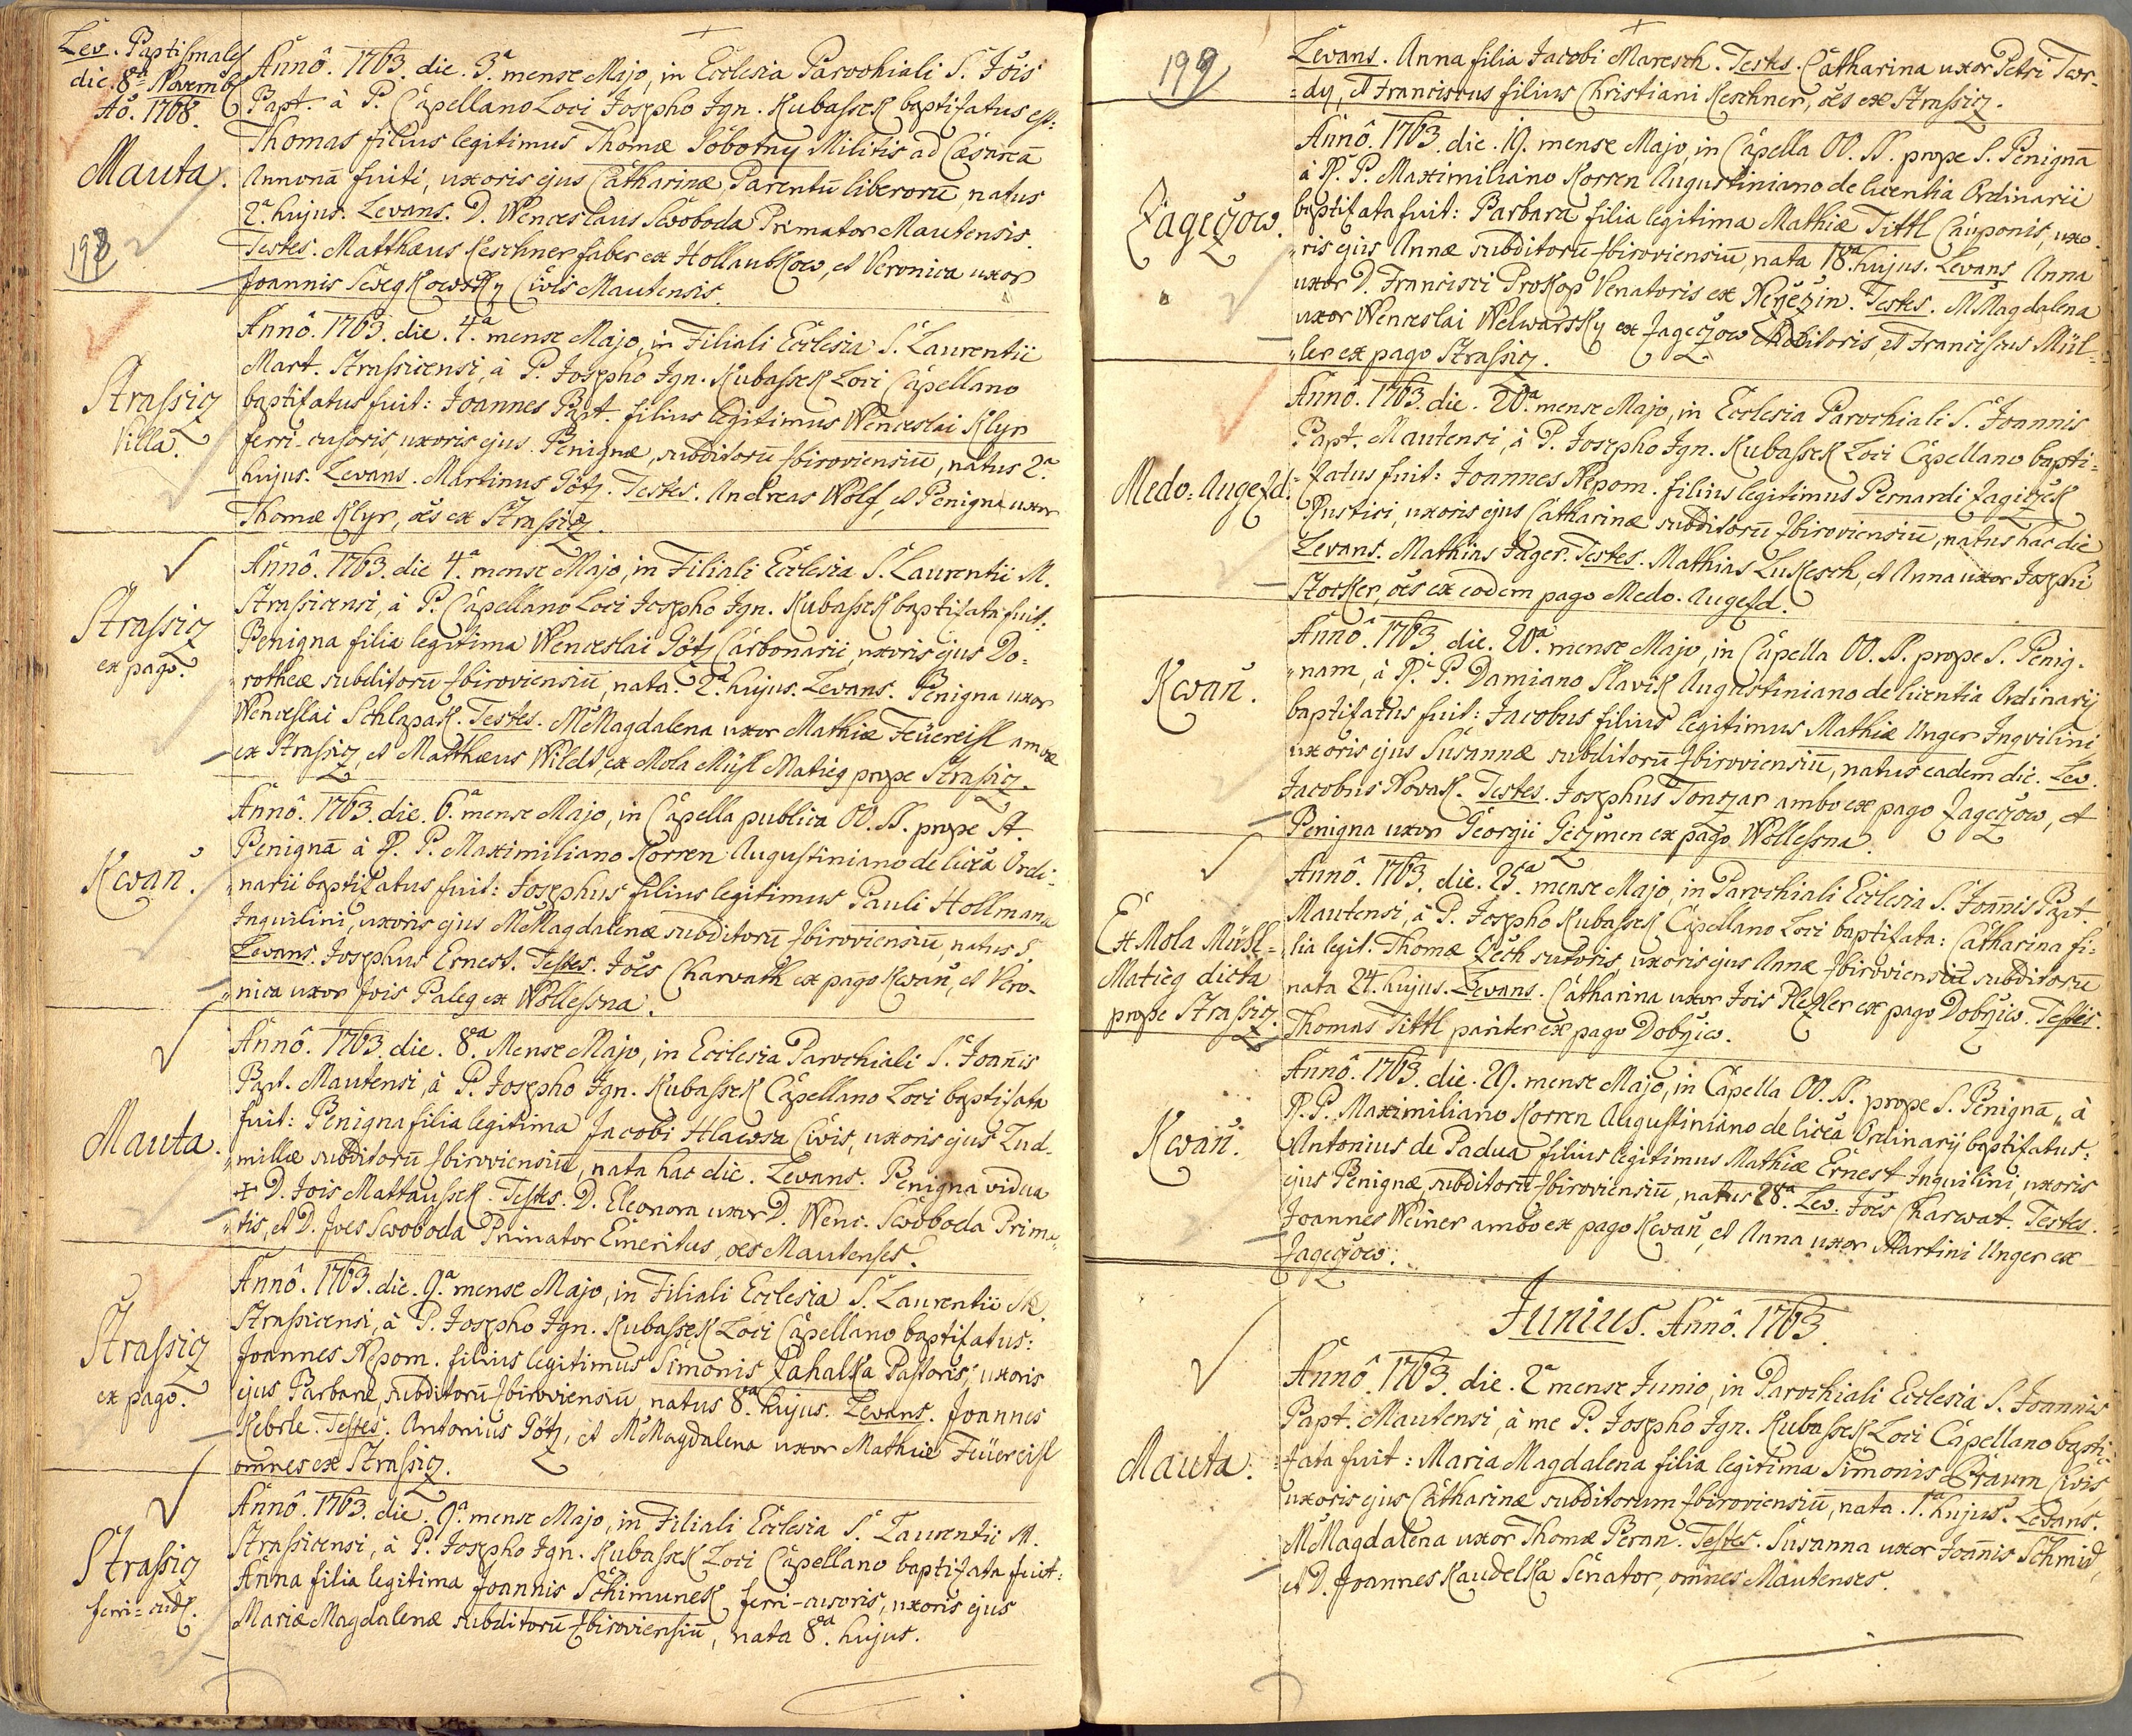 Lev. Baptismales
die. 8ª Novemb
Aô. 1768.
Mauta.
198
Annô. 1763. die. 3ª mense Majo, in Ecclesia Parochiali S. Jõis
Bapt. à P. Capellano Loci Josepho Ign. Kubassek baptisatus est:
Thomas filius legitimus Thomæ Sobotny Militis ad Cæsareã
Annonã , uxoris ejus Catharinæ Parentũ liberorũ natus
2ª hujus. Levans. D. Wenceslaus Swoboda Primator Mautensis.
Testes. Matthæus Keschner faber ex Hollaubkow, et Veronica uxor
Joannis Civis Mautensis.
Strassicz
Villa.
Annô. 1763. die. 4ª mense Majo, in Filiali Ecclesia S. Laurentii
Mart. Strassicensi, à P. Josepho Ign. Kubassek Loci Capellano
baptisatus fuit: Joannes Bapt. filius legitimus Wenceslai Klyr
ferri-cusoris, uxoris ejus Benignæ, subditorũ Sbiroviensiũ, natus 2ª
hujus. Levans. Martinus Götz. Testes. Andreas Wolf, et Benigna uxor
Thomæ Klyr, oẽs ex Strassicz.
Strassicz
ex pago.
Annô. 1763. die 4ª mense Majo, in Filiali Ecclesia S. Laurentii M.
Strassicensi, à P. Capellano Loci Josepho Ign. Kubassek baptisata fuit:
Benigna filia legitima Wenceslai Götz Carbonarii, uxoris ejus Do-
rotheæ subditorũ Sbiroviensiũ, nata. 2ª hujus. Levans. Benigna uxor
Wenceslai Schlapak. Testes. M Magdalena uxor Mathiæ Feüereisl ambæ
ex Strassicz, et Matthæus Wildt ex Mola Müsl Matieg prope Strassicz.
Kwaň.
Annô. 1763. die. 6ª mense Majo, in Capella publica OO. SS. prope St.
Benignã à R. P. Maximiliano Korren Augustiniano de licẽa Ordi-
narii baptisatus fuit: Josephus filius legitimus Pauli Hollmann
Inquilini, uxoris ejus M Magdalenæ subditorũ Sbiroviensiũ, natus 5.
Levans. Josephus Ernest. Testes. Joẽs Charvath ex pago Kwaň, et Vero-
nica uxor Jois Paleg ex Wollessna.
Mauta.
Annô. 1763. die. 8ª Mense Majo, in Ecclesia Parochiali S. Joañis
Bapt. Mautensi, à P. Josepho Ign. Kubassek Capellano Loci baptisata
fuit: Benigna filia legitima Jacobi Hlawsa Civis, uxoris ejus Lud-
millæ subditorũ Sbiroviensiũ, nata hac die. Levans. Benigna vidua
+ D. Jois Mattaussek. Testes. D. Eleonora uxor D. Wenc. Swoboda Prima-
tis, et D. Joes Swoboda Primator Emeritus, oes Mautenses.
Strassicz
ex pago.
Annô. 1763. die. 9ª mense Majo, in Filiali Ecclesia S. Laurentii M.
Strassicensi, à P. Josepho Ign. Kubassek Loci Capellano baptisatus:
Joannes Nepom. filius legitimus Simonis Zahalka Pastoris, uxoris
ejus Barbaræ, subditorũ Sbiroviensiũ, natus 8ª hujus. Levans. Joannes
Kebrle. Testes. Antonius Götz, et M Magdalena uxor Mathiæ Feüereisl
omnes ex Strassicz.
Strassicz
ferri-cud.
Annô. 1763. die. 9ª mense Majo, in Filiali Ecclesia S. Laurentii M.
Strassicensi, à P. Josepho Ign. Kubassek Loci Capellano baptisata fuit:
Anna filia legitima Joannis Schimunek ferri-cusoris, uxoris ejus
Mariæ Magdalenæ subditorũ Sbiroviensiũ, nata 8ª hujus.
199
Levans. Anna filia Jacobi Maresch. Testes. Catharina uxor Petri Twr-
dy, et Franciscus filius Christiani Keschner, oẽs ex Strassicz.
Zageczow.
Annô. 1763. die. 19. mense Majo, in Capella OO. SS. prope S. Benignã
à R. P. Maximiliano Korren Augustiniano de licentia Ordinarii
baptisata fuit: Barbara filia legitima Mathiæ Tittl Cauponis, uxo-
ris ejus Annæ subditorũ Sbiroviensiũ, nata 18ª hujus. Levans Anna
uxor D. Francisci Prokop Venatoris ex . Testes. M Magdalena
uxor Wenceslai Welwarsky ex Zageczow , et Franciscus Mül-
ler ex pago Strassicz.
Medo: Augezd.
Annô. 1763. die. 20ª mense Majo, in Ecclesia Parochiali S. Joannis
Bapt. Mautensi, à P. Josepho Ign. Kubassek Loci Capellano bapti-
satus fuit: Joannes Nepom. filius legitimus Bernardi Zagiczek
Rustici, uxoris ejus Catharinæ subditorũ Sbiroviensiũ, natus hac die
Levans. Mathias Jager. Testes. Mathias Lukesch, et Anna uxor Josephi
Stocker, oẽs ex eodem pago Medo. Augezd.
Kwaň.
Annô. 1763. die. 20ª mense Majo, in Capella OO. SS. prope S. Benig-
nam, à R. P. Damiano Slavik Augustiniano de licentia Ordinarij
baptisatus fuit: Jacobus filius legitimus Mathiæ Unger Inquilini
uxoris ejus Susannæ subditorũ Sbiroviensiũ, natus eadem die. Lev.
Jacobus Novak. Testes. Josephus Tonczar ambo ex pago Zageczow, et
Benigna uxor Georgii Geczmen ex pago Wollessna.
Ex Mola Müsl-
Matieg dicta
prope Strassicz.
Annô. 1763. die. 25ª mense Majo, in Parochiali Ecclesia S. Joannis Bapt
Mautensi, à P. Josepho Kubassek Capellano Loci baptisata: Catharina fi-
lia legit. Thomæ Zech sutoris, uxoris ejus Annæ Sbiroviensiũ subditorũ
nata 24. hujus. Levans. Catharina uxor Jois ex pago Dobrzicv. Testis.
Thomas Tittl pariter ex pago Dobrzicv.
Kwaň.
Annô. 1763. die. 29. mense Majo, in Capella OO. SS. prope S. Benignã, à
R. P. Maximiliano Korren Augustiniano de licẽa Ordinarij baptisatus:
Antonius de Padua filius legitimus Mathiæ Ernest Inquilini, uxoris
ejus Benignæ, subditorũ Sbiroviensiũ, natus 28ª. Lev. Joẽs Charwat. Testes.
Joannes Weiner ambo ex pago Kwaň, et Anna uxor Martini Unger ex
Zageczow.
Junius. Annô. 1763.
Mauta.
Annô. 1763. die. 2ª mense Junio, in Parochiali Ecclesia S. Joannis
Bapt. Mautensi, à me P. Josepho Ign. Kubassek Loci Capellano bapti-
sata fuit: Maria Magdalena filia legitima Simonis Braum Civis
uxoris ejus Catharinæ subditorum Sbiroviensiũ, nata. 1ª hujus. Levans.
M Magdalena uxor Thomæ Beran. Testes. Susanna uxor Joañis Schmid,
et D. Joannes Kaudelka Senator, omnes Mautenses.